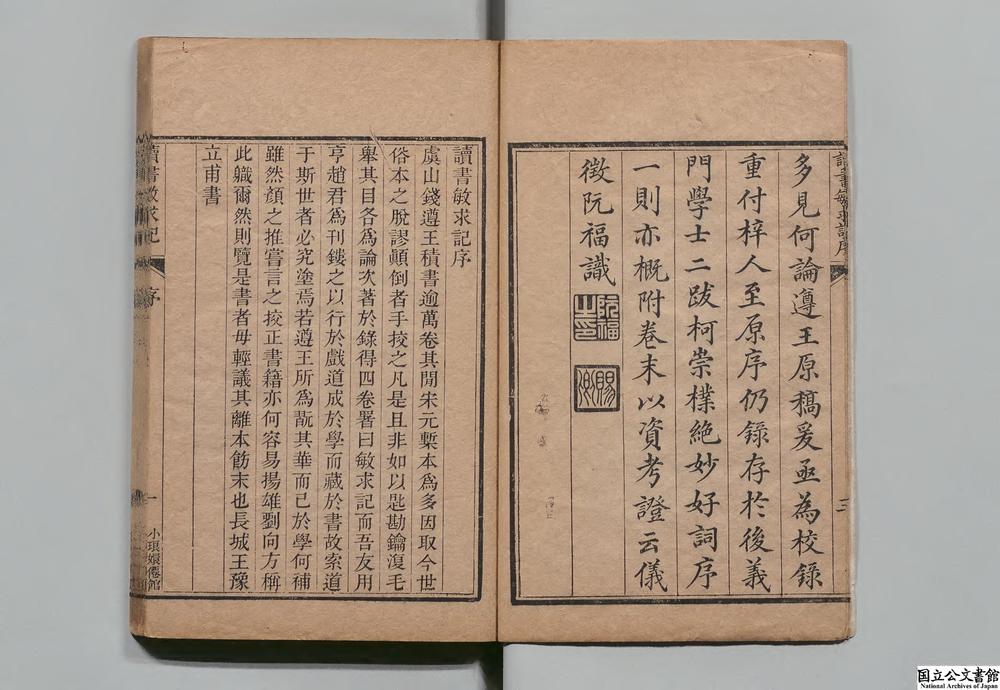 多見何論遵王原稿爰亟為校錄
重付梓人至原序仍錄存扵後義
門學士二跋柯崇樸絶妙好詞序
一則亦概附卷末以資考證云儀
徴阮福識
阮福之印
賜卿
讀書敏求記序
三
讀書敏求記序
虞山錢遵王積書逾萬卷其閒宋元槧本爲多因取今世
俗本之脫謬顚倒者手挍之凡是且非如以匙勘鑰𣸪毛
舉其目各爲論次著於錄得四卷署曰敏求記而吾友用
亨趙君爲刊鏤之以行於戲道成於學而藏於書故索道
于斯世者必究塗焉若遵王所爲翫其華而已於學何補
雖然顏之推嘗言之挍正書籍亦何容易揚雄劉向方稱
此軄爾然則覽是書者毋輕議其離本飭末也長城王豫
立甫書
讀書敏求記
序
一
小琅嬛僊館
国立公文書館
National Archives of Japan